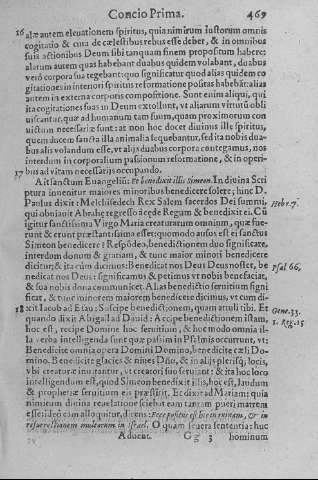 Concio Prima. 469
16 alæ autem eleuationem spiritus, quia nimirum Iustorum omnis
cogitatio & cura de cælestibus rebus esse debet, & in omnibus
suis actionibus Deum sibi tanquam finem propositum habere:
alarum autem quas habebant duabus quidem volabant, duabus
verò corpora sua tegebant: quo significatur quod alias quidem co
gitationes in interiori spiritus reformatione positas habebāt: alias
autem in externa corporis compositione. Sunt enim aliqui, qui
ita cogitationes suas in Deum extollunt, vt aliarum virtutū obli
uiscantur, quæ ad humanam tam suum, quam proximorum con
uictum necessariæ sunt: at non hoc docet diuinus ille spiritus,
quem ducem sancta illa animalia sequebantur, sed ita nobis dua-
bus alis volandum esse, vt alijs duabus corpora contegamus, nos
interdum in corporalium passionum reformatione, & in operi-
bus ad vitam necessarijs occupando.
17 Ait sanctum Euangeliū: Et benedixit illis Simeon. In diuina Scri
ptura inuenitur maiores minoribus benedicere solere; hunc D.
Paulus dixit: Melchisedech Rex Salem sacerdos Dei summi,
Hebr. 7.
qui obuiauit Abrahę regresso à cęde Regum & benedixit ei. Cū
igitur sanctissima Virgo Maria creaturarum omnium, quæ fue-
runt & erunt præstantissima esset: quomodo ausus est ei sanctus
Simeon benedicere? Respōdeo, benedictionem duo significare,
interdum donum & gratiam, & tunc maior minori benedicere
dicitur; & ita cum dicimus: Benedicat nos Deus Deus noster, be
Psal 66,
nedicat nos Deus: significamus & petimus vt nobis benefaciat,
& sua nobis dona communicet. Alias benedictio seruitium signi
ficat, & tunc minorem maiorem benedicere dicimus, vt cum di-
18 xit Iacob ad Esau: Suscipe benedictionem, quam attuli tibi. Et
Gene. 33.
quando dixit Abigail ad Dauid: Accipe benedictionem istam,
1. Reg. 25
hoc est, recipe Domine hoc seruitium, & hoc modo omnia il-
la verba intelligenda sunt quæ passim in Psalmis occurrunt, vt:
Benedicite omnia opera Domini Domino, benedicite cæli Do-
mino. Benedicite glacies & niues Dño, & in alijs plerisq; locis,
vbi creaturæ inuitantur, vt creatori suo seruiant: & ita hoc loco
intelligendum est, quod Simeon benedixit illis, hoc est, laudum
& prophetiæ seruitium eis præstitit. Et dixit ad Mariam: quia
nimirum diuina reuelatione sciebat eam tantam pueri matrem
esse: ideò eam alloquitur, dicens: Ecce positus est hic in ruinam, & in
resurrectionem multorum in Israel. O quam seuera sententia: huc
Aduent. Gg 3 hominum